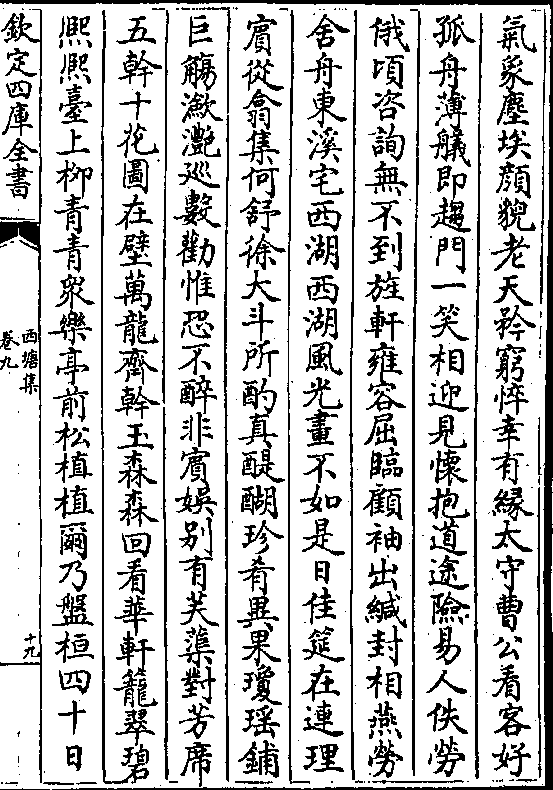 氣象塵埃顔貌老天矜窮悴幸有緣太守曹公看客好
孤舟薄艤即趨門一笑相迎見懷抱道途險易人佚勞
俄頃咨詢無不到旌軒雍容屈臨顧袖出緘封相燕勞
舍舟東溪宅西湖西湖風光畫不如是日佳筵在連理
賓從翕集何舒徐大斗所酌真醍醐珍肴異果瓊瑶鋪
巨觴瀲灔巡數勸惟恐不醉非賓娯别有芙蕖對芳席
五幹十花圖在壁萬龍齊幹玉森森回看華軒籠翠碧
熙熙臺上栁青青衆樂亭前松植植爾乃盤桓四十日
欽定四庫全書
西塘集
卷九
十九